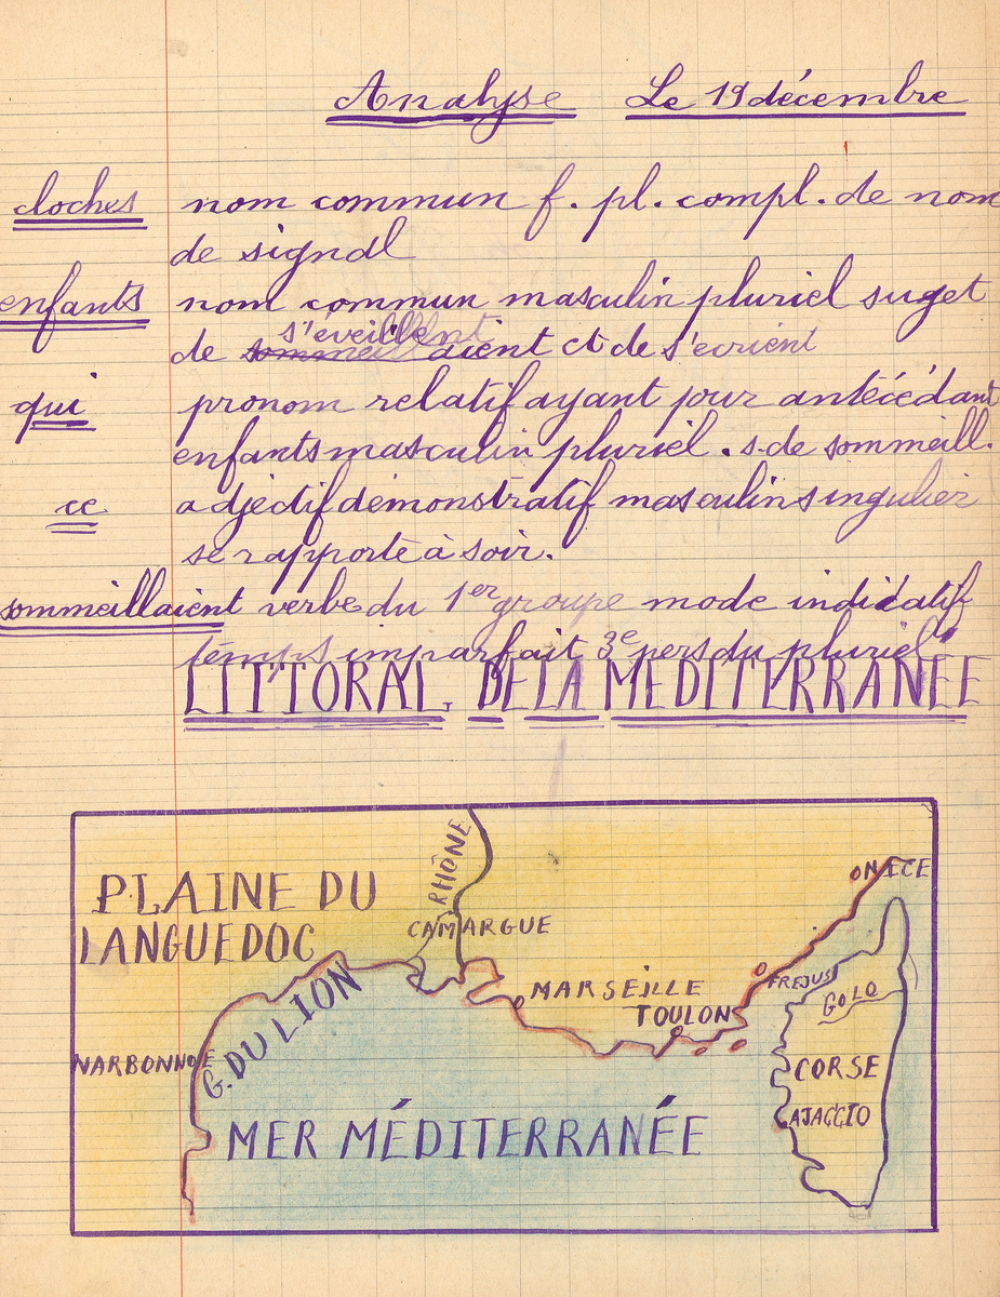 Analyse Le 19 décembre
cloches nom commun f. pl. compl. de nom
de signal
enfants nom commun masculin pluriel suget
s'éveillent
de aient et de s'écrient
qui pronom relatif ayant pour antécédant
enfants masculin pluriel. s. de sommeill.
ce adjectif démonstratif masculin singulier
se rapporte à soir.
sommeillaient verbe du 1er groupe mode indicatif
temps imparfait 3e pers du pluriel
LITTORAL DE LA MEDITERRANÉE
RHÔNE
NICE
PLAINE DU
LANGUEDOC
CAMARGUE
G. DU LION
MARSEILLE
FREJUS
GOLO
TOULON
NARBONNE
CORSE
AJACCIO
MER MÉDITERRANÉE